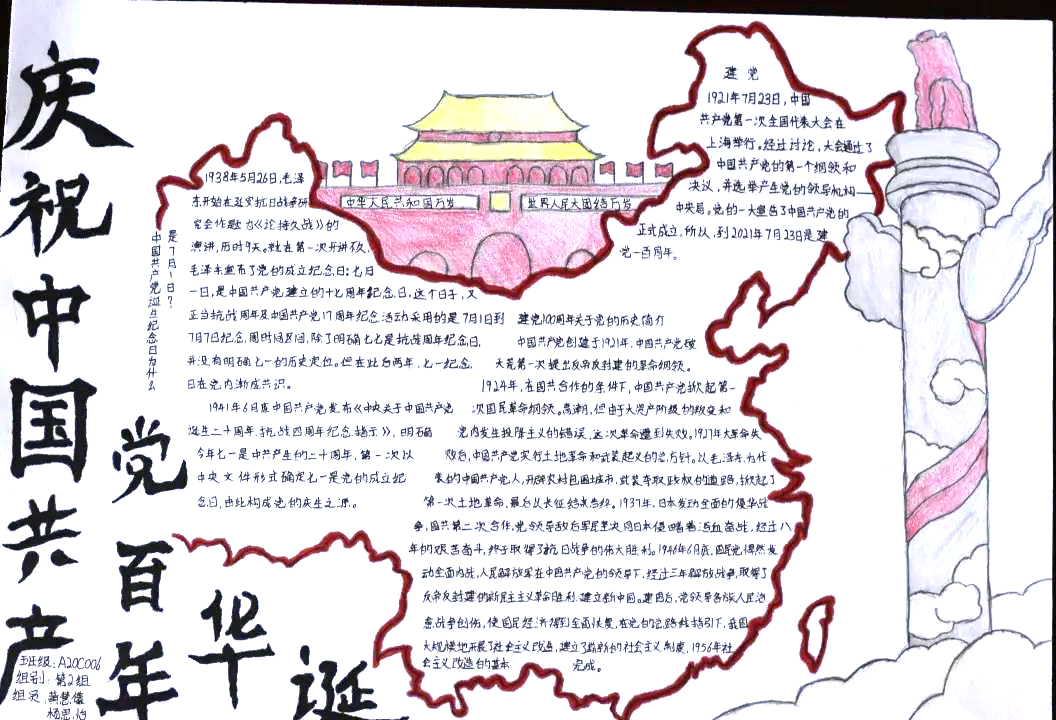 庆祝中国共产
党百年
华诞
中华人民共和国万岁
世界人民大团结万岁
是7月1日?
中国共产党诞生纪念日为什么
1938年5月26日,毛泽
东开始在延安抗日战争研
究会作题为《论持久战》的
演讲,历时9天。就在第一次开讲不久,
毛泽东宣布了党的成立纪念日:七月
一日,是中国共产党建立的十七周年纪念日,这个日子,又
正当抗战周年及中国共产党17周年纪念活动采用的是7月1日到
7月7日纪念,
除了明确七七是抗战周年纪念日,
并没有明确七一的历史定位。但在此后两年,七一纪念
日在党内渐成共识。
1941年6月底中国共产党发布《中央关于中国共产党
诞生二十周年、抗战四周年纪念指示》,明确
今年七一是中共产生的二十周年,第一次以
中央文件形式确定七一是党的成立纪
念日,由此构成党的庆生之源。
建党
1921年7月23日,中国
共产党第一次全国代表大会在
上海举行。经过讨论,大会通过了
中国共产党的第一个纲领和
决议,并选举产生党的领导机构——
中央局。党的一大宣告了中国共产党的
正式成立,所以,到2021年7月23日是建
党一百周年。
建党100周年关于党的历史简介
中国共产党创建于1921年,中国共产党破
天荒第一次提出反帝反封建的革命纲领。
1924年,在国共合作的条件下,中国共产党掀起第一
次国民革命纲领。高潮,但由于大资产阶级的叛变和
党内发生投降主义的错误,这次革命遭到失败。1927年大革命失
败后,中国共产党实行土地革命和武装起义的总方针。以毛泽东为代
表的中国共产党人,开辟农村包围城市,武装夺取政权的道路,掀起了
第一次土地革命,最后以长征结束告终。1937年,日本发动全面的侵华战
争,国共第二次合作,党领导敌后军民坚决同日本侵略者浴血奋战,经过八
年的艰苦奋斗,终于取得了抗日战争的伟大胜利。1946年6月底,国民党悍然发
动全面内战,人民解放军在中国共产党的领导下,经过三年解放战争,取得了
反帝反封建的新民主主义革命胜利,建立新中国。建国后,党领导各族人民治
愈战争创伤,使国民经济得到全面恢复,在党的总路线指引下,我国
大规模地开展了社会主义改造,建立了崭新的社会主义制度,1956年社
会主义改造的基本 完成。
班级:A20C006
组别:第2组
组员:黄慧倩
杨思怡